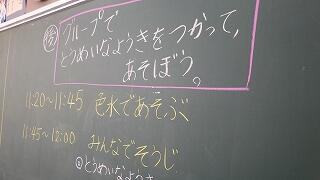 グループで
とうめいなようきをつかって,
あそぼう。
11:20~11:45 色水であそぶ
11:45~12:00 みんなでそうじ
とうめいなようき